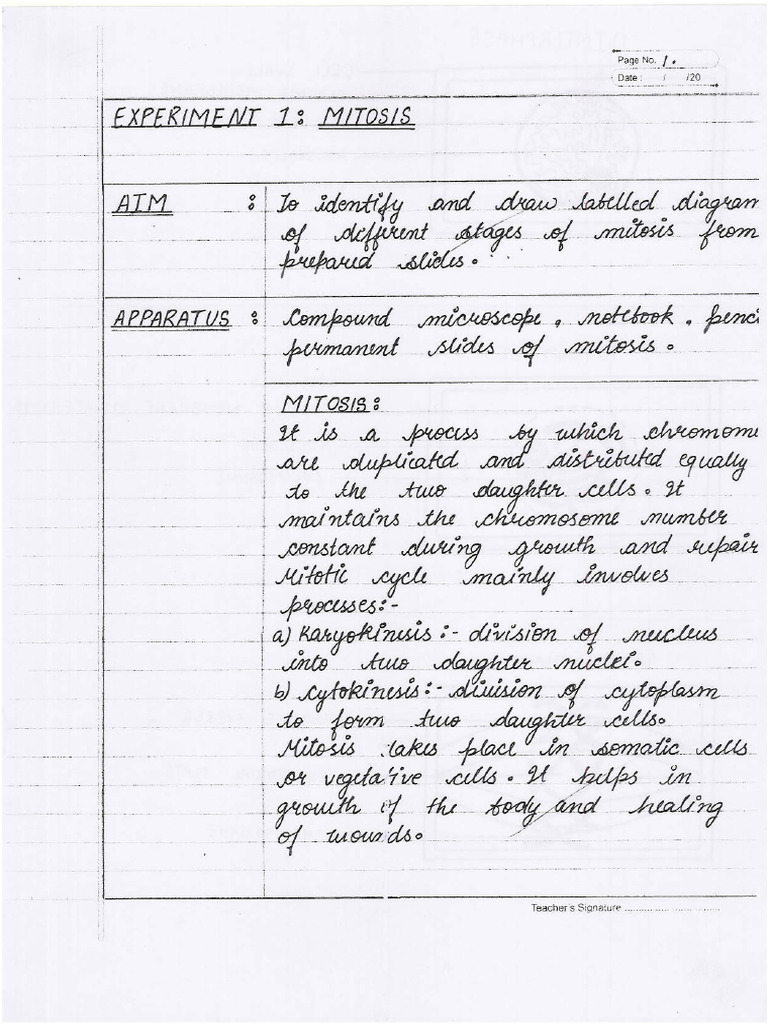 Page No. 1.
Date : / /20
EXPERIMENT 1: MITOSIS
AIM : To identify and draw labelled diagram
of different stages of mitosis from
prepared slides.
APPARATUS : Compound microscope, notebook, penci
permanent slides of mitosis.
MITOSIS:
It is a process by which chromome
are duplicated and distributed equally
to the two daughter cells. It
maintains the chromosome number
constant during growth and repair
Mitotic cycle mainly involves
processes:-
a) Karyokinesis :- division of nucleus
into two daughter nuclei.
b) Cytokinesis:- division of cytoplasm
to form two daughter cells.
Mitosis takes place in somatic cells
or vegetative cells. It helps in
growth of the body and healing
of wounds.
Teacher's Signature ........................